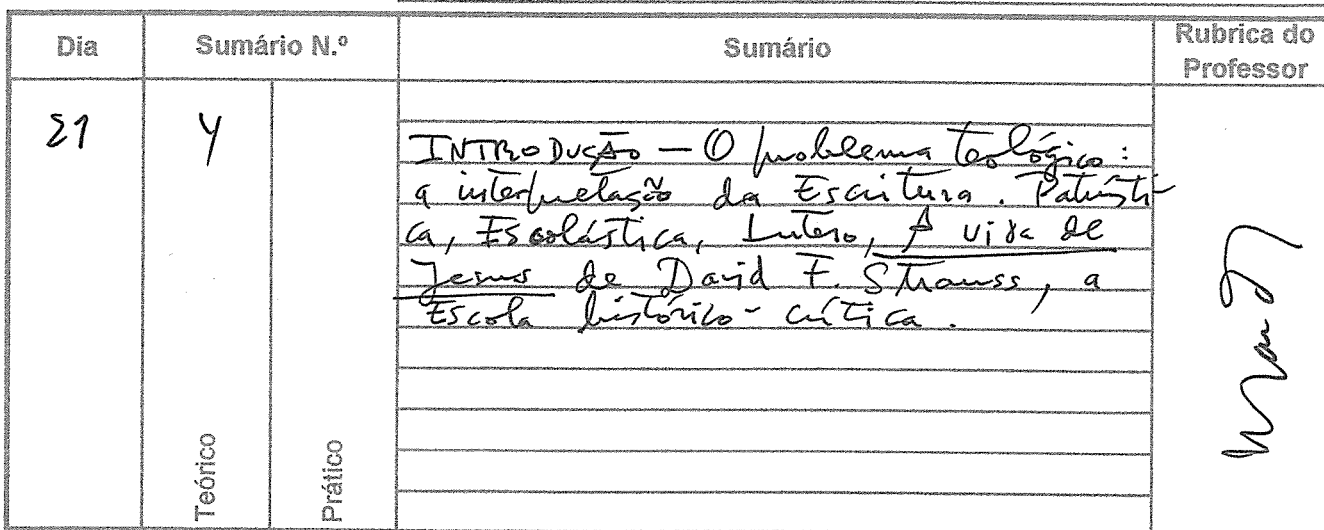 Dia Sumário N.º Sumário Rubrica do Professor
21 4
INTRODUÇÃO — O problema teológico:
a interpretação da Escritura. Patrísti-
ca, Escolástica, Lutero, A vida de
Jesus de David F. Strauss, a
Escola histórico-crítica.
Teórico
Prático